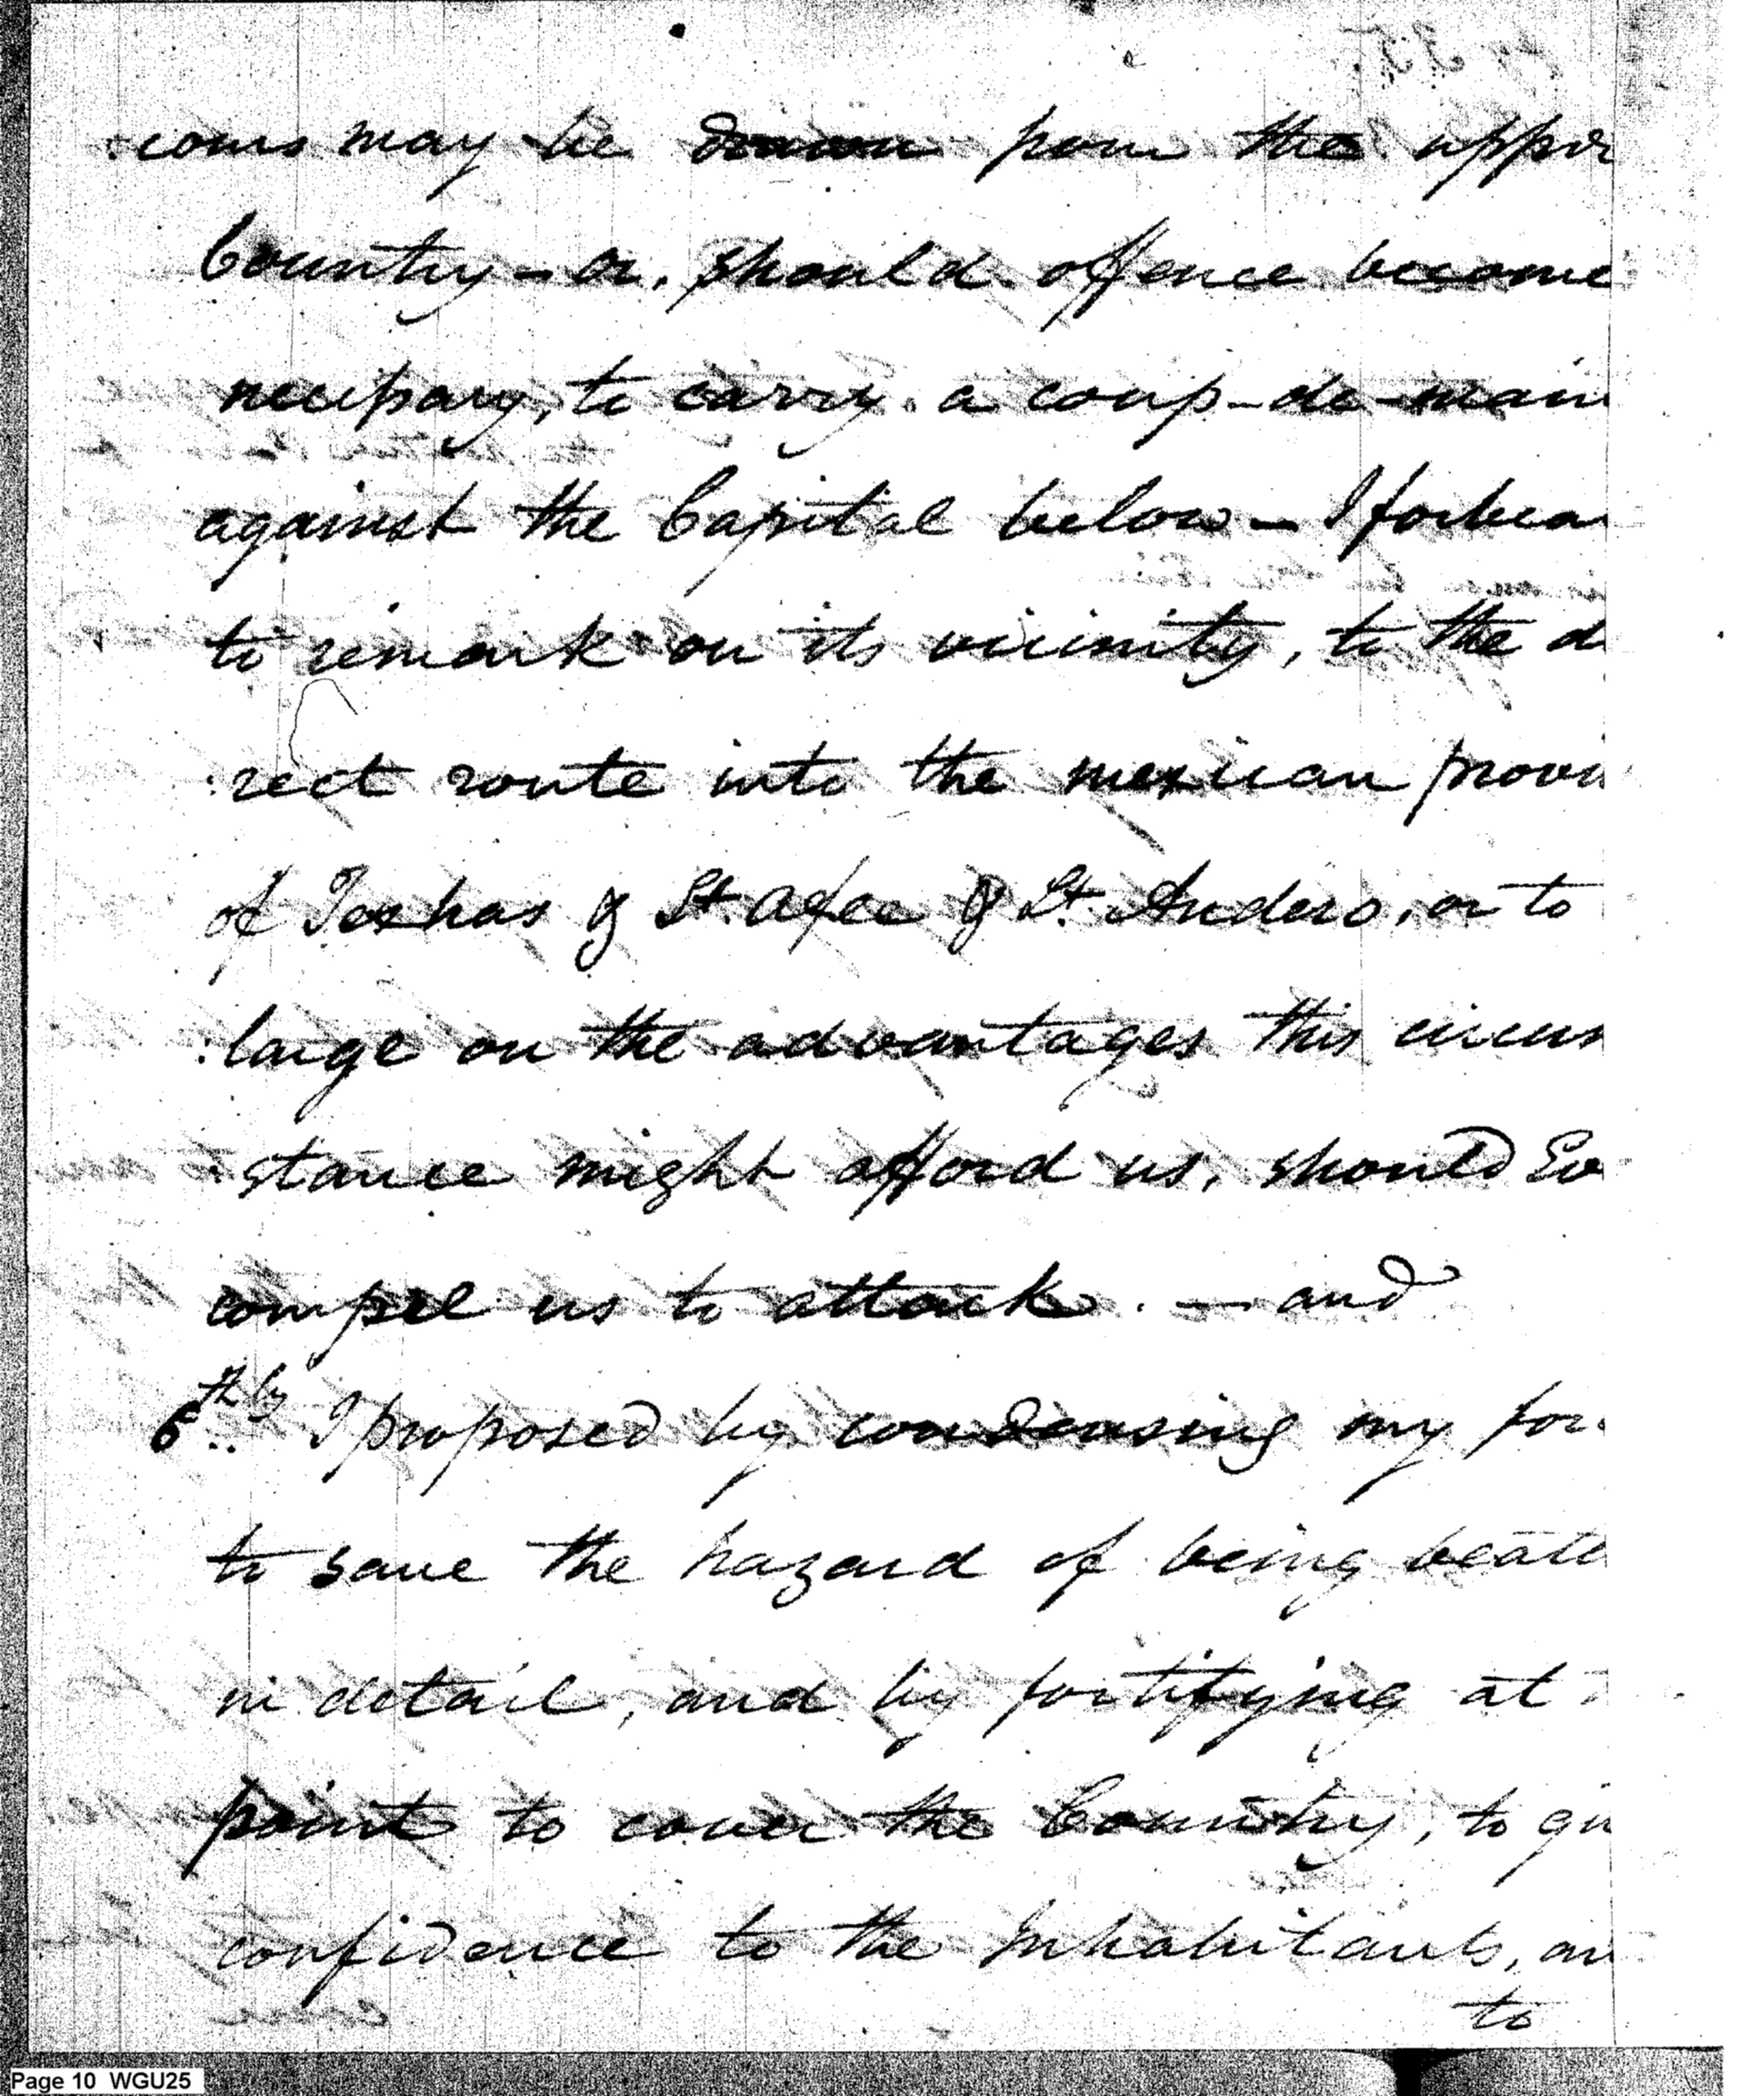 :cours may be drawn from the upper
Country – or, should offence become
necessary, to carry a coup-de-main
against the Capital below – I forbear
to remark on its vicinity, to the di
:rect route into the mexican provin
of Texhas & St. afee & St. Andero, or to
:large on the advantages this circum
:stance might afford us, should
compel us to attack. — and
6thly I proposed by condensing my for
to save the hazard of being beate
in detail, and by fortifying at
point to cover the Country, to giv
confidence to the Inhabitants, an
to
Page 10 WGU25